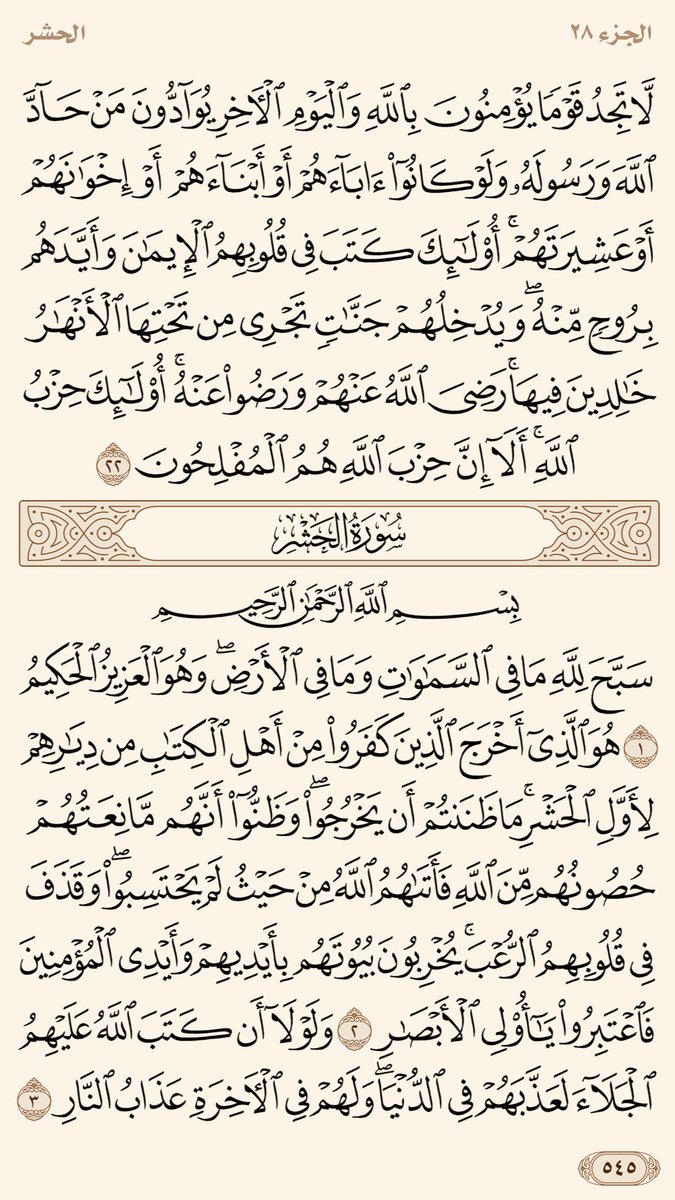 الجزء ٢٨
الحشر
لَّا تَجِدُ قَوْمًا يُؤْمِنُونَ بِٱللَّهِ وَٱلْيَوْمِ ٱلْأَخِرِ يُوَآدُّونَ مَنْ حَآدَّ
ٱللَّهَ وَرَسُولَهُۥ وَلَوْ كَانُوٓا۟ ءَابَآءَهُمْ أَوْ أَبْنَآءَهُمْ أَوْ إِخْوَٰنَهُمْ
أَوْ عَشِيرَتَهُمْ ۚ أُو۟لَٰٓئِكَ كَتَبَ فِى قُلُوبِهِمُ ٱلْإِيمَٰنَ وَأَيَّدَهُم
بِرُوحٍ مِّنْهُ ۖ وَيُدْخِلُهُمْ جَنَّٰتٍ تَجْرِى مِن تَحْتِهَا ٱلْأَنْهَٰرُ
خَٰلِدِينَ فِيهَا ۚ رَضِىَ ٱللَّهُ عَنْهُمْ وَرَضُوا۟ عَنْهُ ۚ أُو۟لَٰٓئِكَ حِزْبُ
ٱللَّهِ ۚ أَلَآ إِنَّ حِزْبَ ٱللَّهِ هُمُ ٱلْمُفْلِحُونَ ٢٢
سُورَةُ الحَشْرِ
بِسْمِ ٱللَّهِ ٱلرَّحْمَٰنِ ٱلرَّحِيمِ
سَبَّحَ لِلَّهِ مَا فِى ٱلسَّمَٰوَٰتِ وَمَا فِى ٱلْأَرْضِ ۖ وَهُوَ ٱلْعَزِيزُ ٱلْحَكِيمُ
١ هُوَ ٱلَّذِىٓ أَخْرَجَ ٱلَّذِينَ كَفَرُوا۟ مِنْ أَهْلِ ٱلْكِتَٰبِ مِن دِيَٰرِهِمْ
لِأَوَّلِ ٱلْحَشْرِ ۚ مَا ظَنَنتُمْ أَن يَخْرُجُوا۟ ۖ وَظَنُّوٓا۟ أَنَّهُم مَّانِعَتُهُمْ
حُصُونُهُم مِّنَ ٱللَّهِ فَأَتَىٰهُمُ ٱللَّهُ مِنْ حَيْثُ لَمْ يَحْتَسِبُوا۟ ۖ وَقَذَفَ
فِى قُلُوبِهِمُ ٱلرُّعْبَ ۚ يُخْرِبُونَ بُيُوتَهُم بِأَيْدِيهِمْ وَأَيْدِى ٱلْمُؤْمِنِينَ
فَٱعْتَبِرُوا۟ يَٰٓأُو۟لِى ٱلْأَبْصَٰرِ ٢ وَلَوْلَآ أَن كَتَبَ ٱللَّهُ عَلَيْهِمُ
ٱلْجَلَآءَ لَعَذَّبَهُمْ فِى ٱلدُّنْيَا ۖ وَلَهُمْ فِى ٱلْأَخِرَةِ عَذَابُ ٱلنَّارِ ٣
٥٤٥